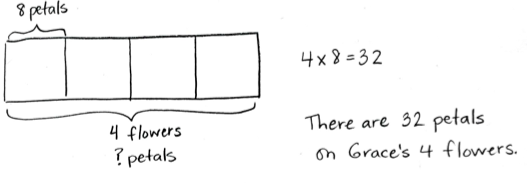 8 petals
4 flowers
? petals
4 x 8 = 32
There are 32 petals
on Grace's 4 flowers.